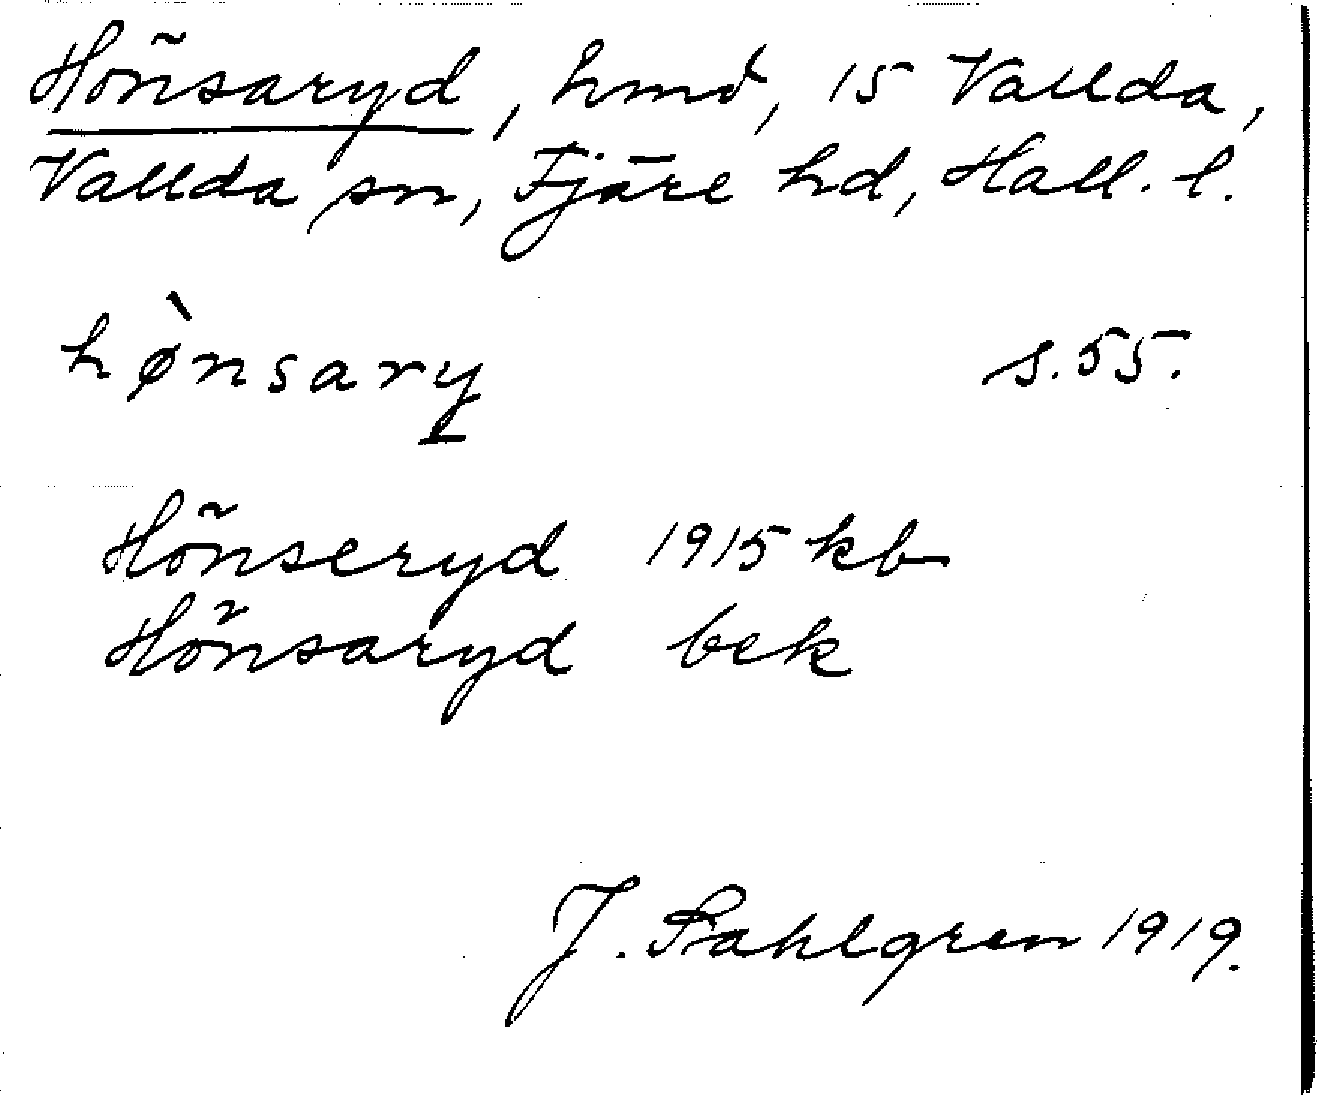 Hönsaryd, hmd, 15 Vallda,
Vallda sn, Fjäre hd, Hall. l.
hø̀nsary s. 55.
Hönseryd 1915 kb
Hönsaryd bek
J. Sahlgren 1919.